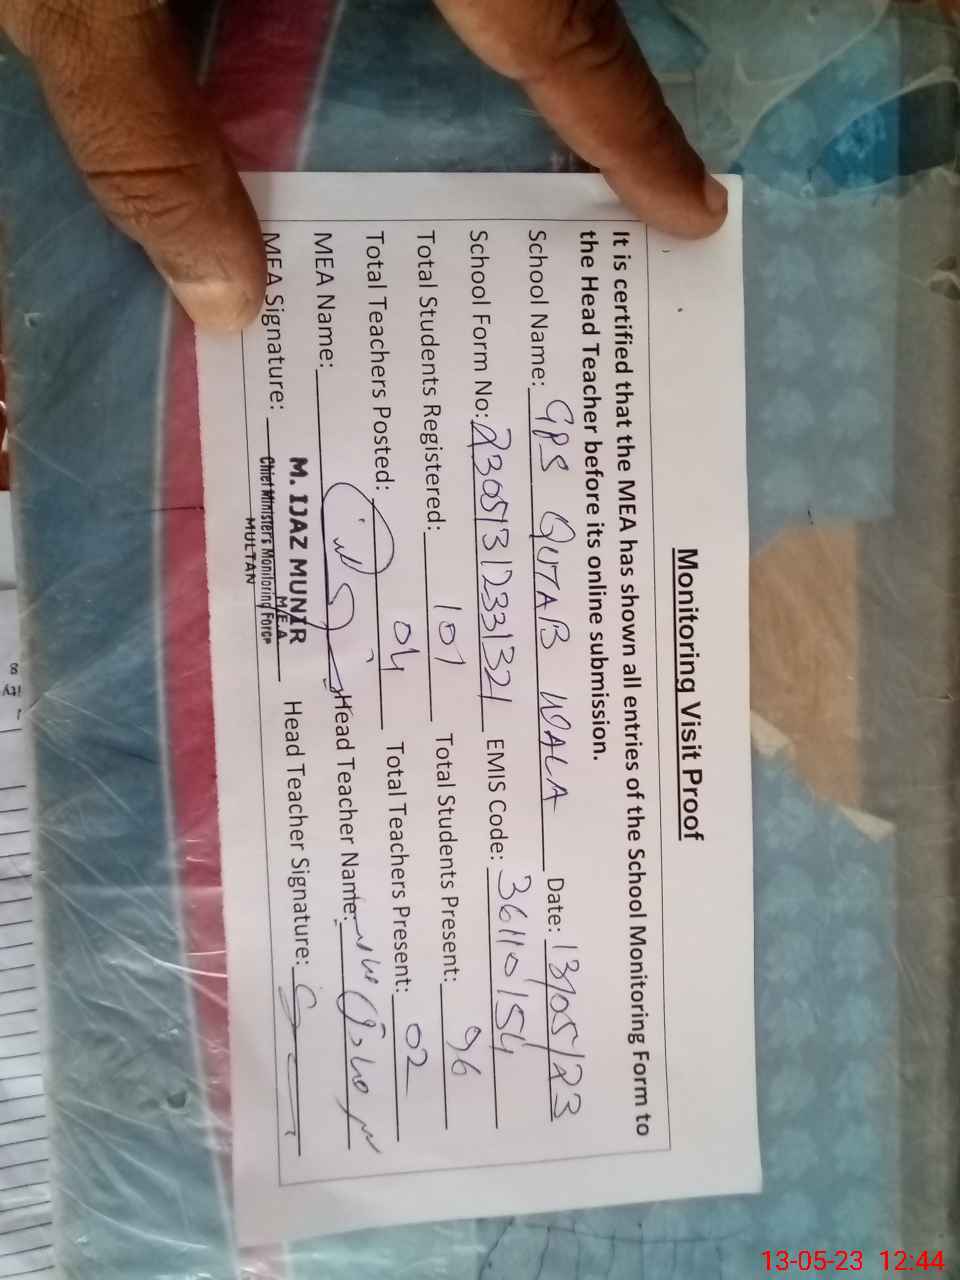 Monitoring Visit Proof
It is certified that the MEA has shown all entries of the School Monitoring Form to
the Head Teacher before its online submission.
School Name: GPS QUTAB WALA Date: 13/05/23
School Form No: 23051312331321 EMIS Code: 36110154
Total Students Registered: 101 Total Students Present: 96
Total Teachers Posted: 04 Total Teachers Present: 02
MEA Name: Head Teacher Name:
MEA Signature: Head Teacher Signature:
M. IJAZ MUNIR
M.E.A
Chief Ministers Monitoring Force
MULTAN
13-05-23 12:44